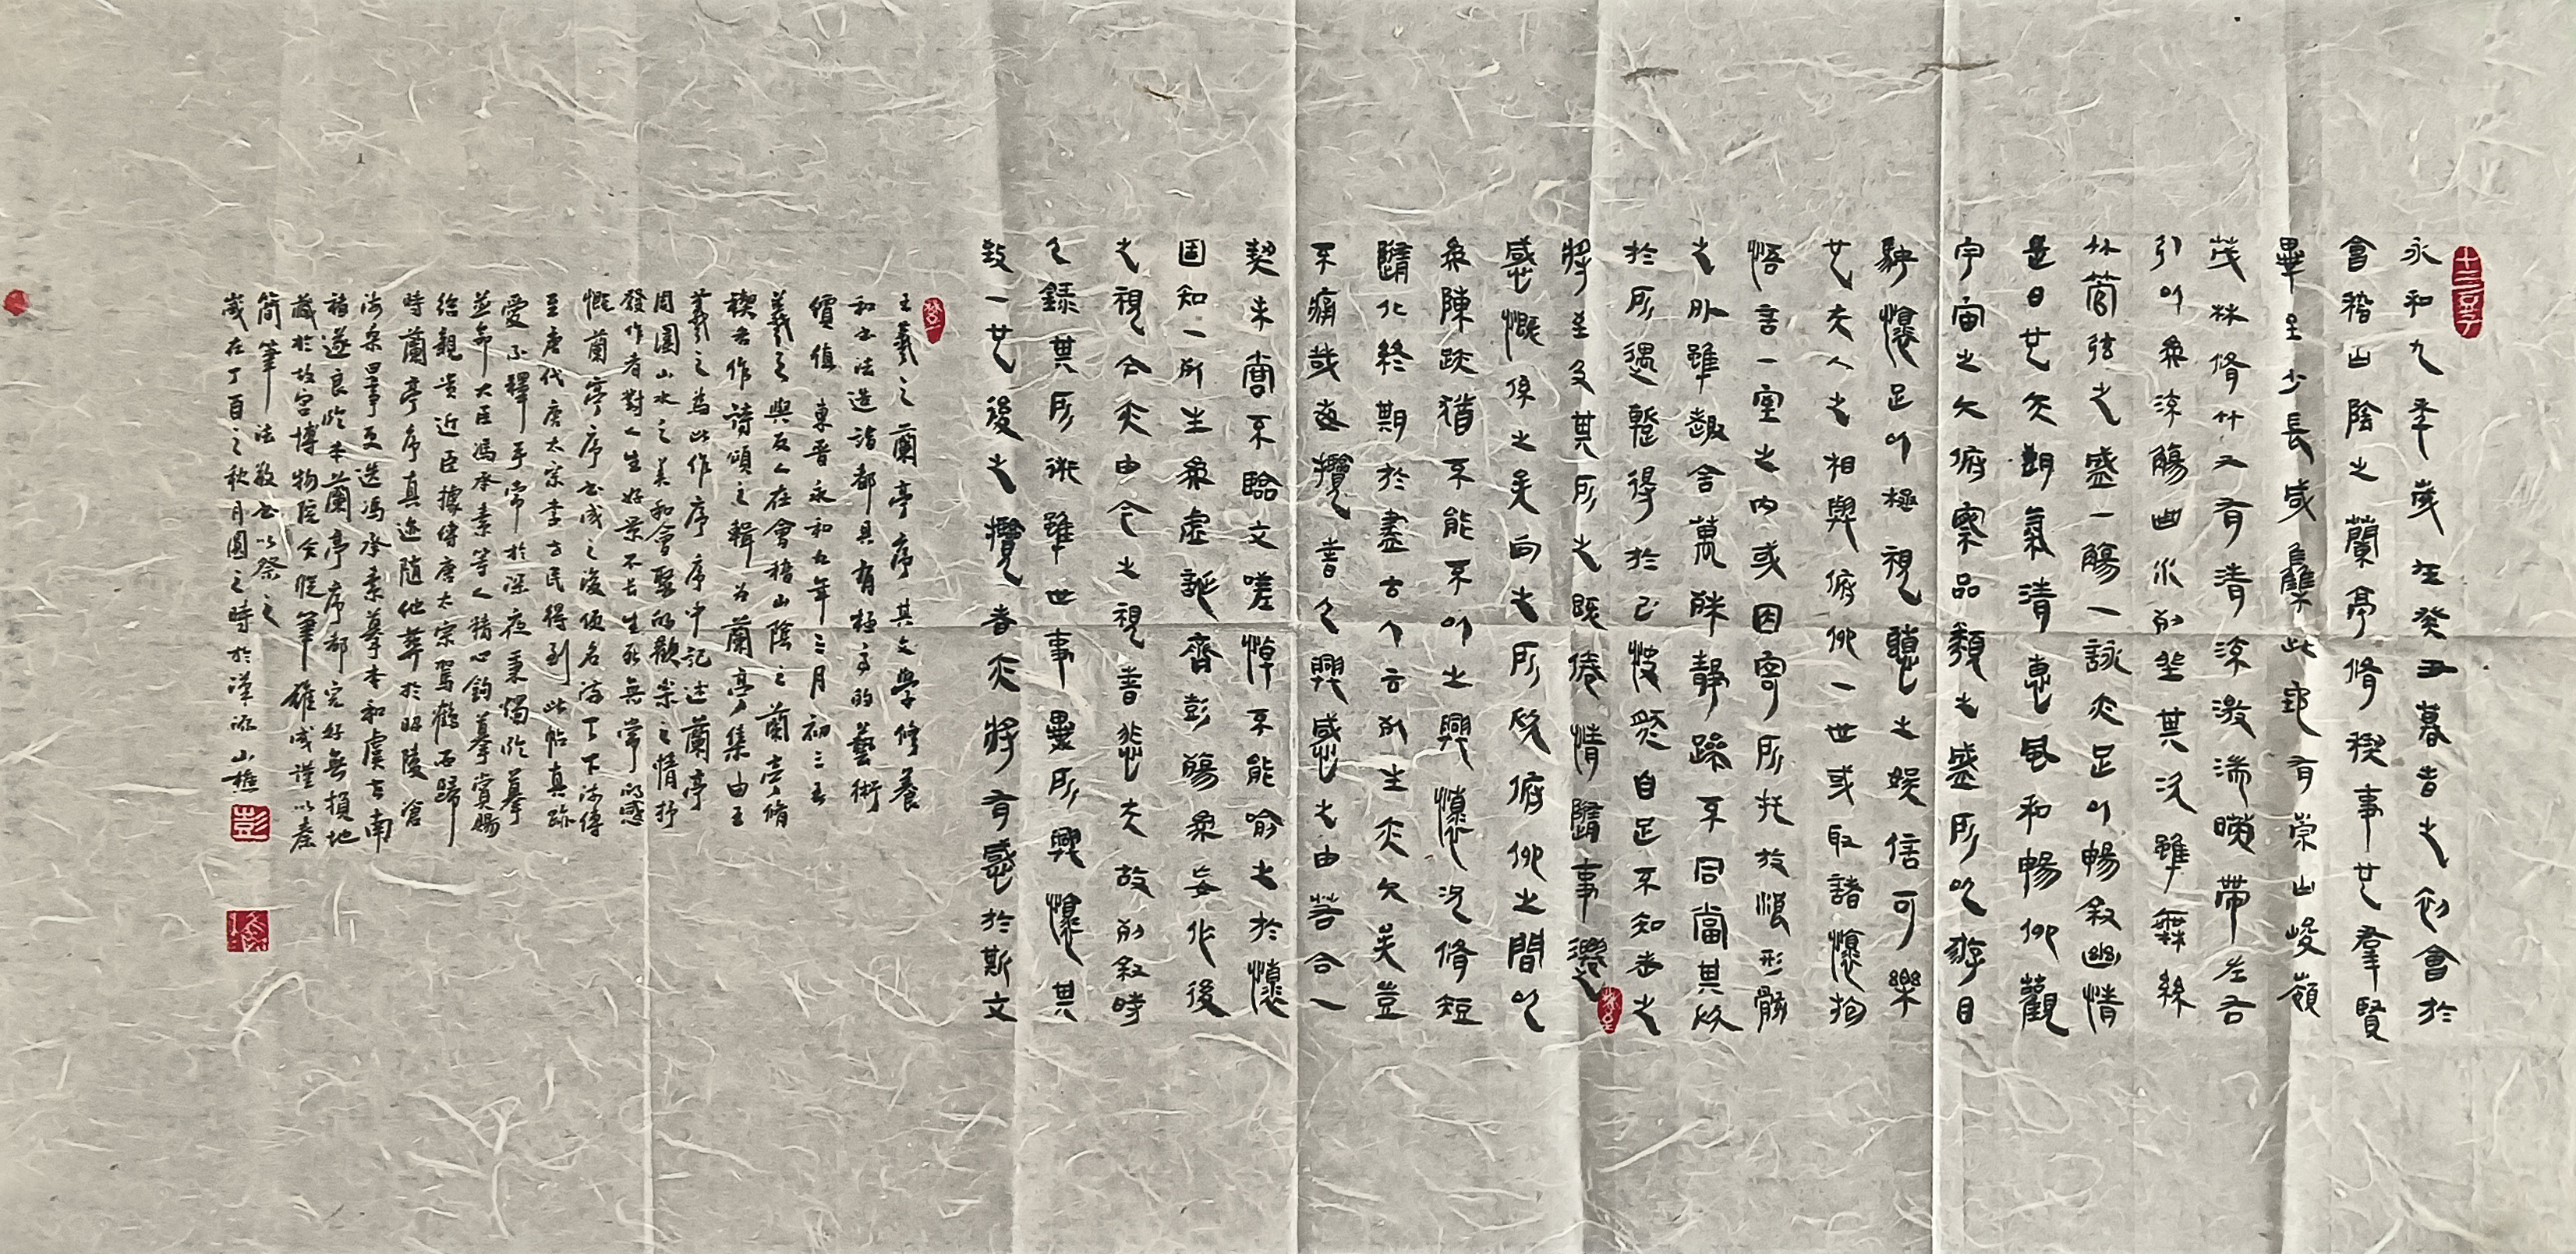 永和九年歲在癸丑暮春之初會於
會稽山陰之蘭亭脩禊事也羣賢
畢至少長咸集此地有崇山峻嶺
茂林脩竹又有清流激湍暎帶左右
引以為流觴曲水列坐其次雖無絲
竹管弦之盛一觴一詠亦足以暢敘幽情
是日也天朗氣清惠風和暢仰觀
宇宙之大俯察品類之盛所以游目
騁懷足以極視聽之娛信可樂
也夫人之相與俯仰一世或取諸懷抱
悟言一室之內或因寄所托放浪形骸
之外雖趣舍萬殊靜躁不同當其欣
於所遇暫得於己怏然自足不知老之
將至及其所之既倦情隨事遷
感慨係之矣向之所欣俯仰之間以
為陳跡猶不能不以之興懷況脩短
隨化終期於盡古人云死生亦大矣豈
不痛哉每攬昔人興感之由若合一
契未嘗不臨文嗟悼不能喻之於懷
固知一死生為虛誕齊彭殤為妄作後
之視今亦由今之視昔悲夫故列敘時
人錄其所述雖世事異所興懷其
致一也後之攬者亦將有感於斯文
王羲之蘭亭序其文學修養
和書法造詣都具有極高的藝術
價值東晉永和九年三月初三王
羲之與友人在會稽山陰之蘭亭脩
禊各作詩頌之輯為蘭亭集由王
羲之為此作序序中記述蘭亭
周圍山水之美和會聚的歡樂之情抒
發作者對人生好景不長生死無常的感
慨蘭亭序書成之後便名滿天下流傳
至唐代唐太宗李世民得到此帖真跡
愛不釋手常於深夜秉燭臨摹
並命大臣馮承素等人精心鉤摹賞賜
給親貴近臣據傳唐太宗駕鶴西歸
時蘭亭序真迹隨他葬於昭陵滄
海桑田事更迭馮承素摹本和虞世南
褚遂良臨本蘭亭序都完好無損地
藏於故宮博物院今筆雖成謹以秦
簡筆法敬書以祭之
歲在丁酉之秋月圓之時於漢源山樵
彭